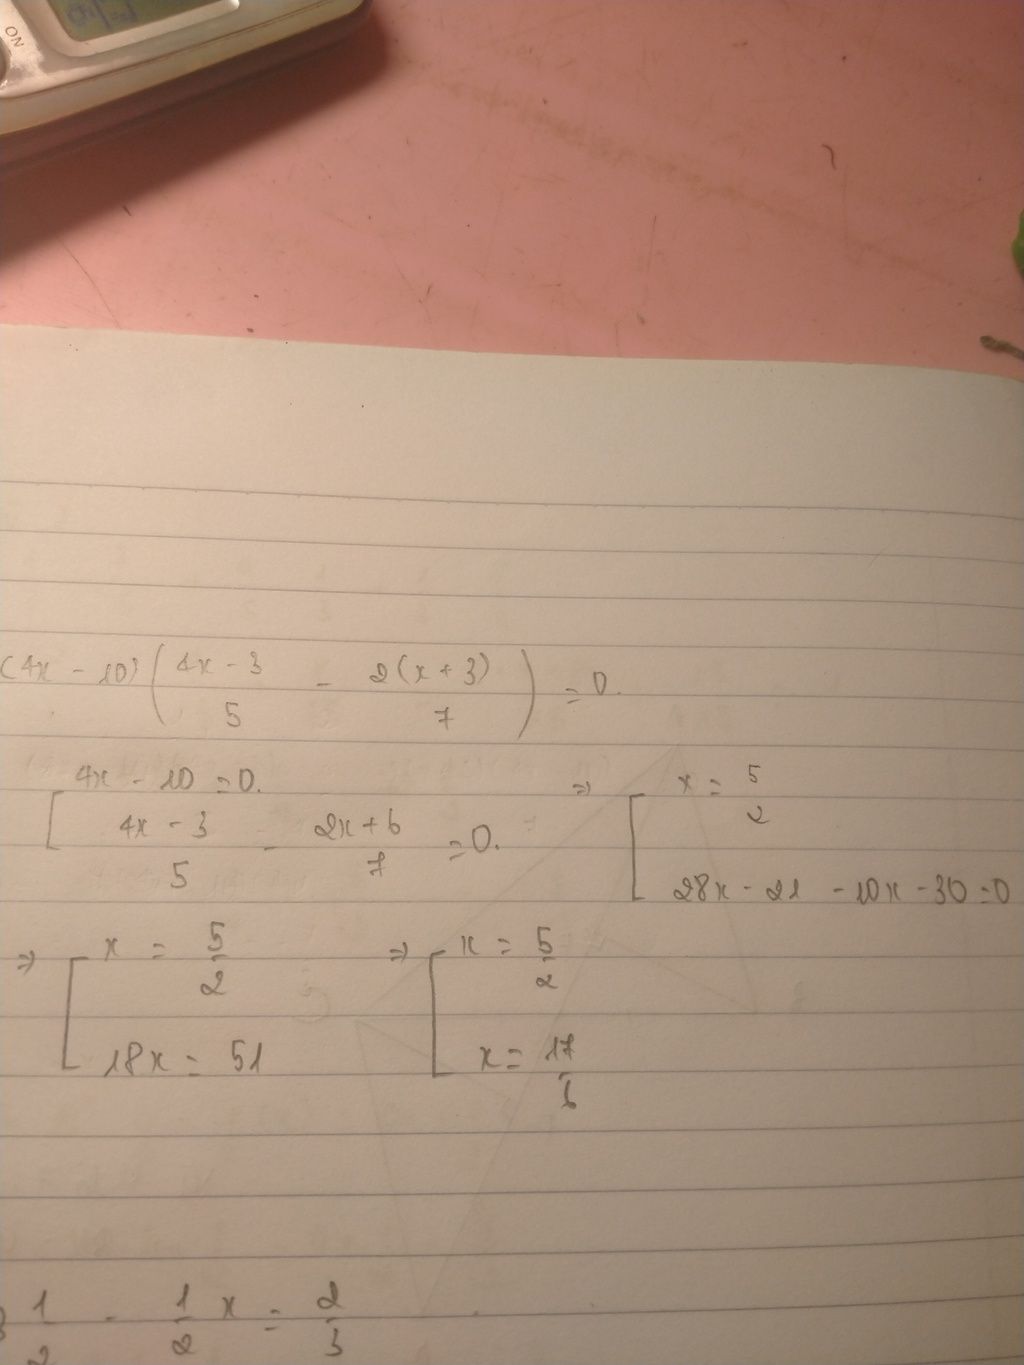 ON
(4x - 10) ( (4x - 3)/5 - 2(x + 3)/7 ) = 0.
[ 4x - 10 = 0. ⇒ [ x = 5/2
(4x - 3)/5 - (2x + 6)/7 = 0. 28x - 21 - 10x - 30 = 0
⇒ [ x = 5/2 ⇒ [ x = 5/2
18x = 51 x = 17/6
1/2 - 1/2 x = 2/3